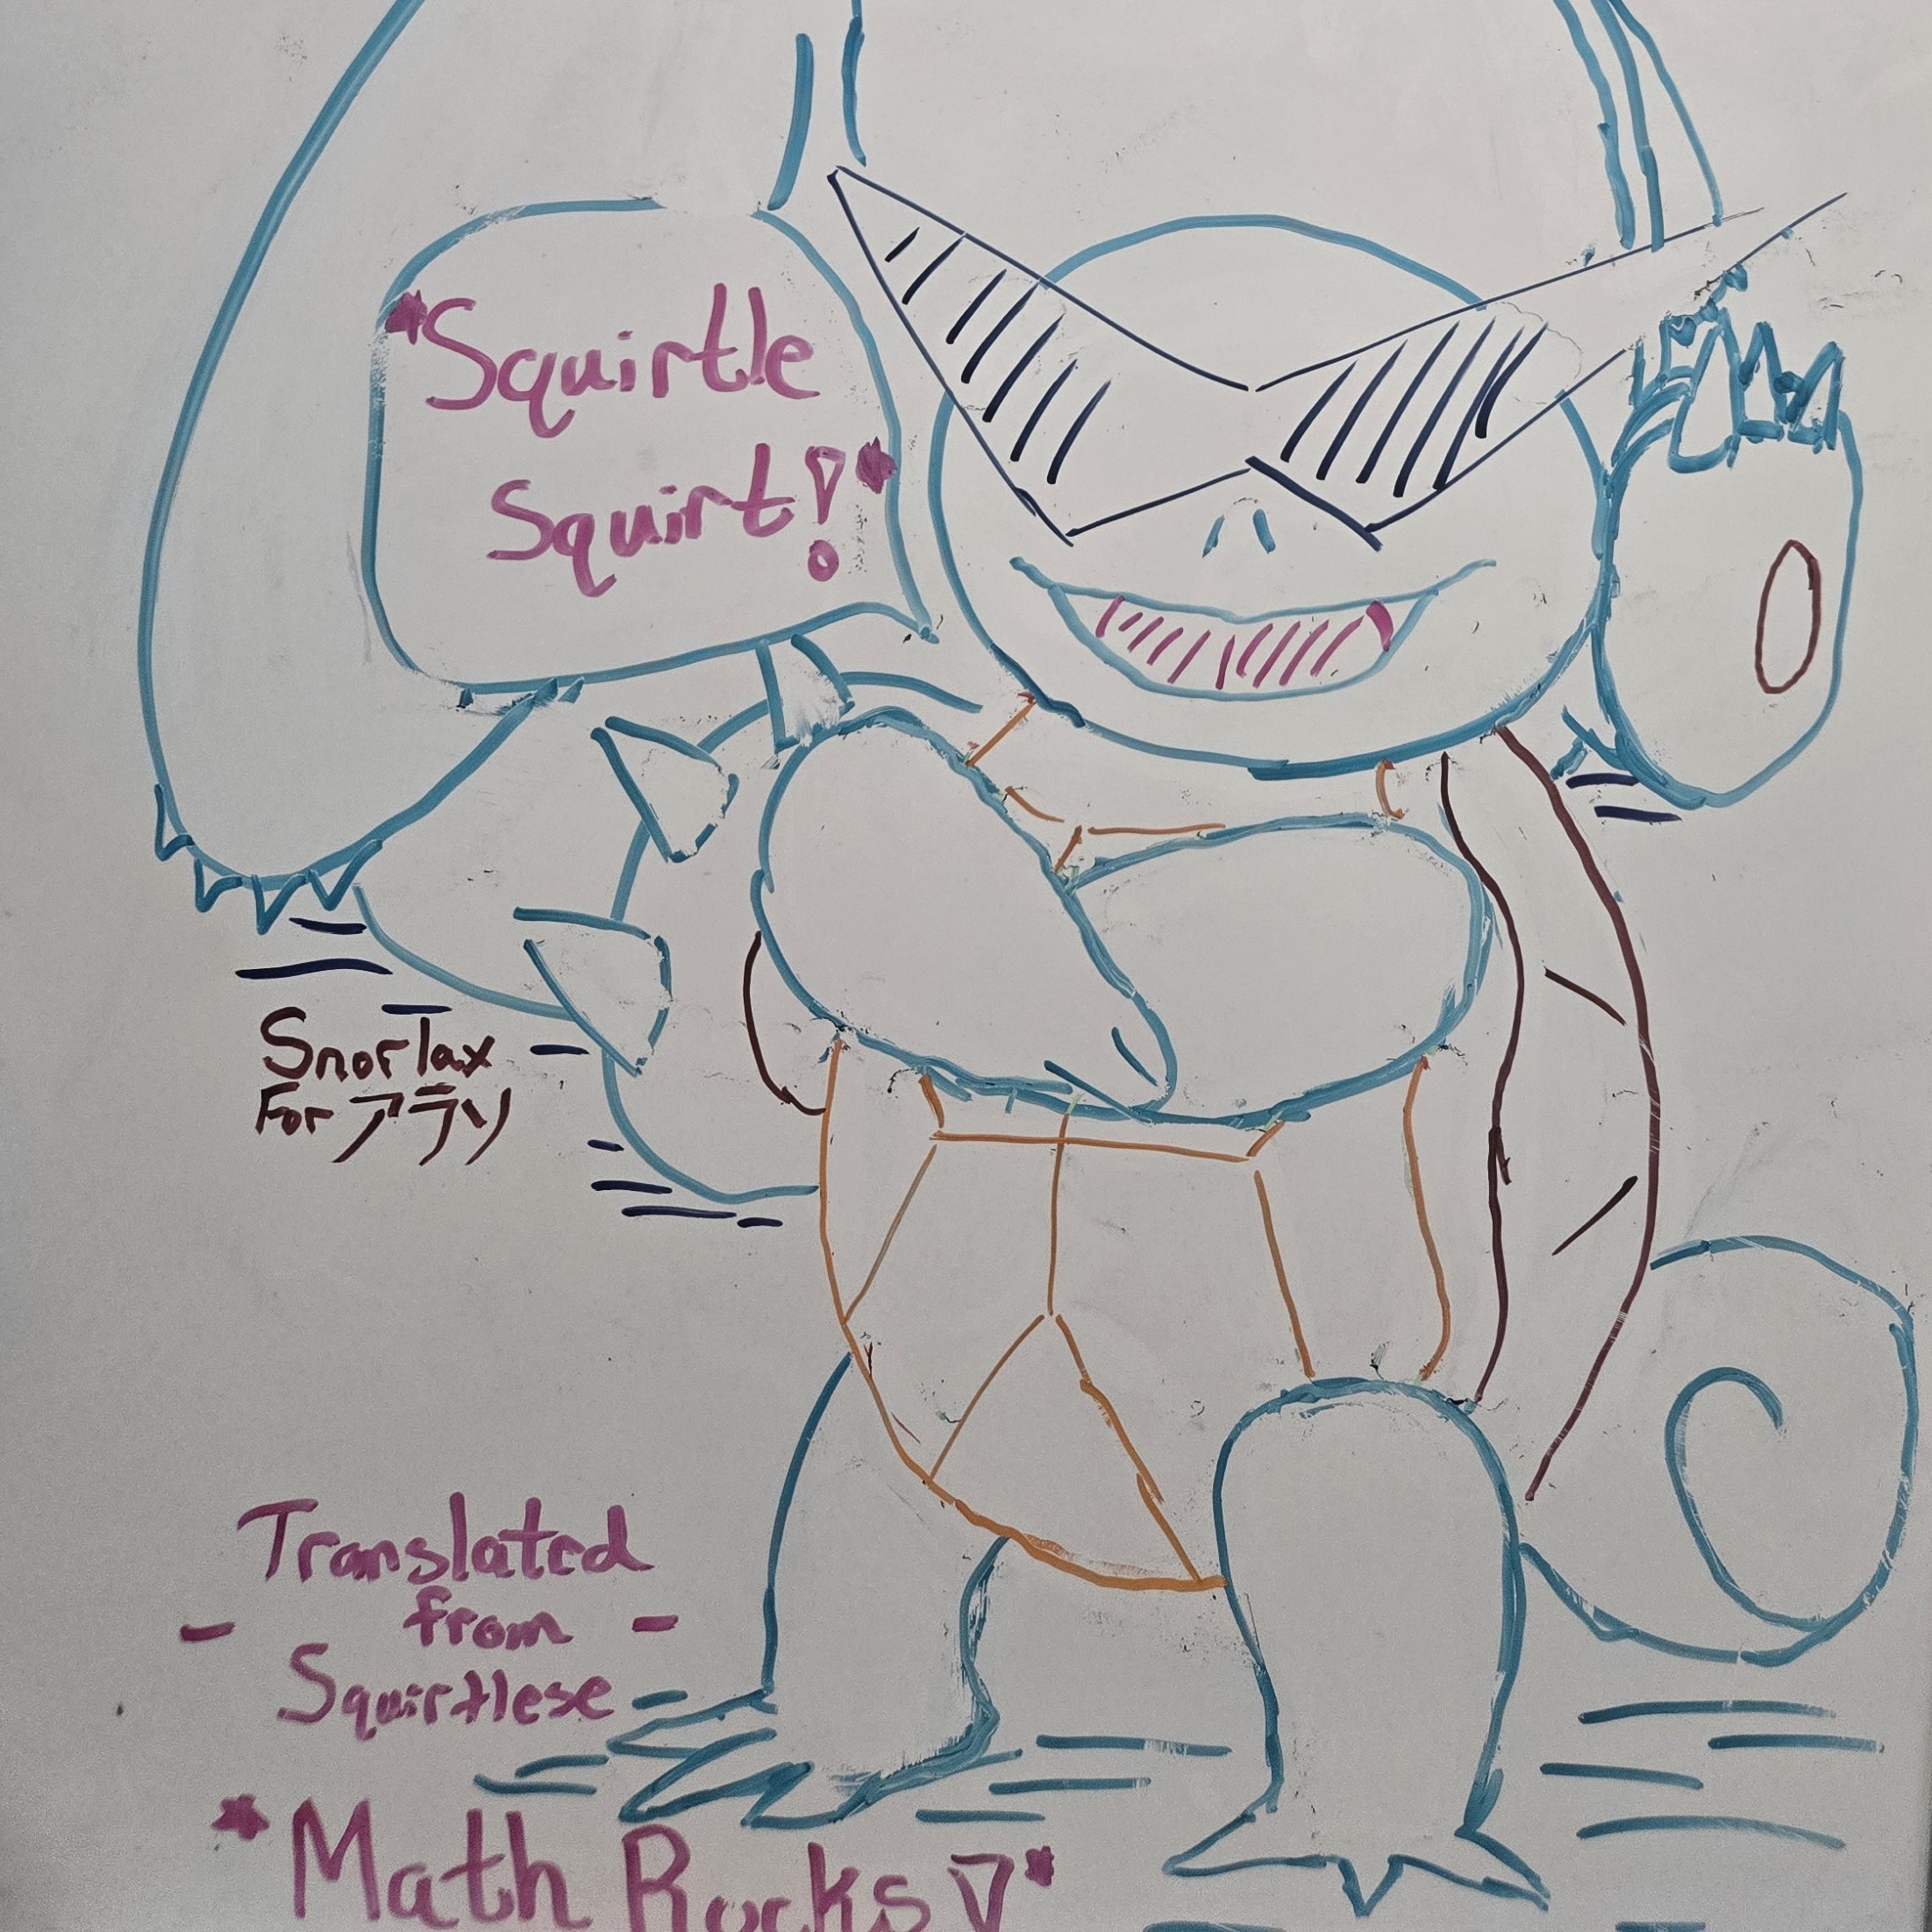 *Squirtle
Squirt!*
Snorlax
For アラソ
Translated
- from -
Squirtlese
*Math Rocks!*